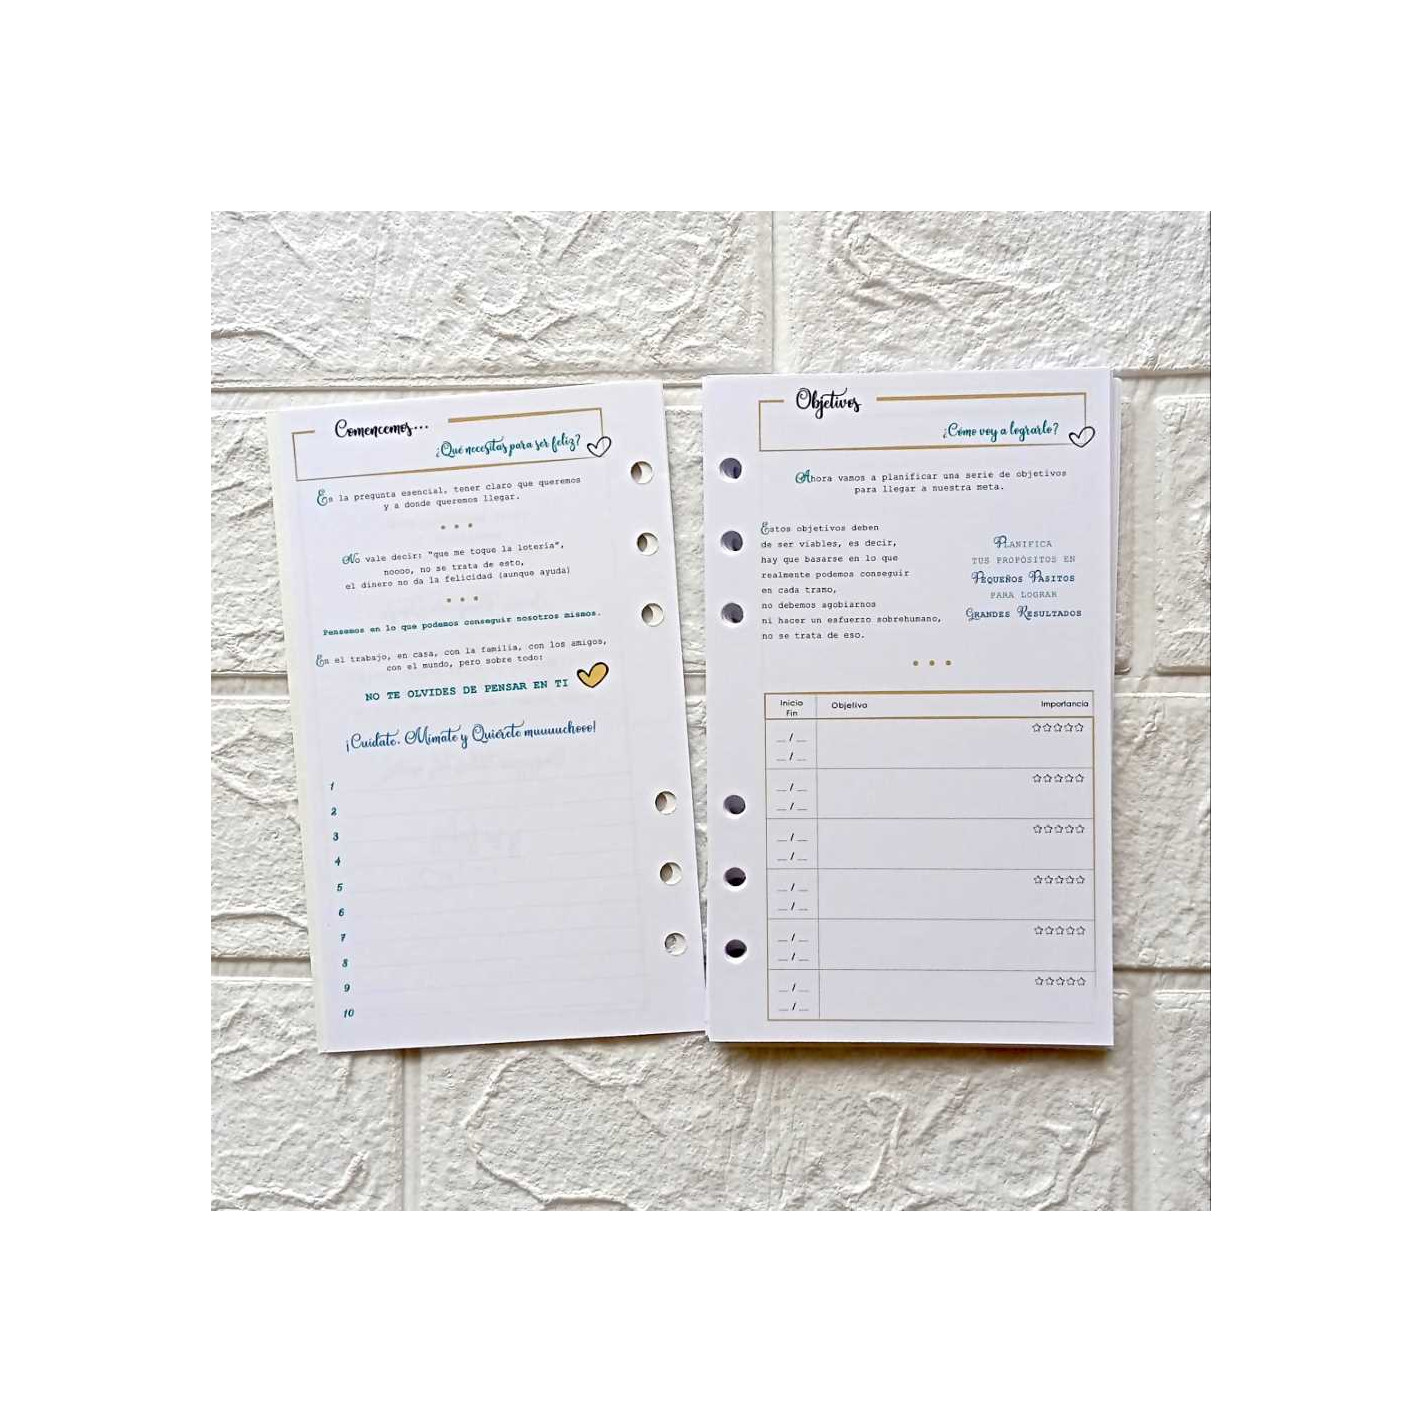 Comencemos...
¿Qué necesitas para ser feliz?
Es la pregunta esencial, tener claro que queremos
y a donde queremos llegar.
No vale decir: "que me toque la lotería",
noooo, no se trata de esto,
el dinero no da la felicidad (aunque ayuda)
Pensemos en lo que podemos conseguir nosotros mismos.
En el trabajo, en casa, con la familia, con los amigos,
con el mundo, pero sobre todo:
NO TE OLVIDES DE PENSAR EN TI
¡Cuídate, Mímate y Quiérete muuuuchooo!
1
2
3
4
5
6
7
8
9
10
Objetivos
¿Cómo voy a lograrlo?
Ahora vamos a planificar una serie de objetivos
para llegar a nuestra meta.
Estos objetivos deben
de ser viables, es decir,
hay que basarse en lo que
realmente podemos conseguir
en cada tramo,
no debemos agobiarnos
ni hacer un esfuerzo sobrehumano,
no se trata de eso.
PLANIFICA
TUS PROPÓSITOS EN
PEQUEÑOS PASITOS
PARA LOGRAR
GRANDES RESULTADOS
Inicio
Fin
Objetivo
Importancia
__ / __
__ / __
__ / __
__ / __
__ / __
__ / __
__ / __
__ / __
__ / __
__ / __
__ / __
__ / __